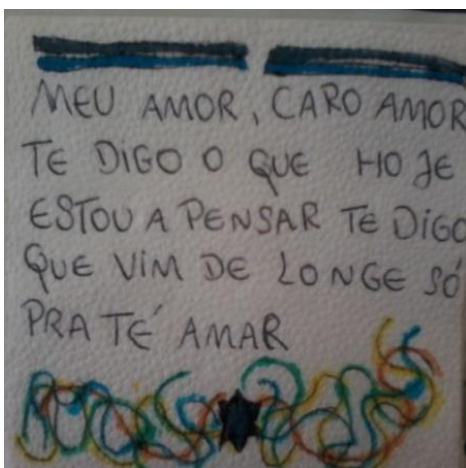 MEU AMOR, CARO AMOR
TE DIGO O QUE HOJE
ESTOU A PENSAR TE DIGO
QUE VIM DE LONGE SÓ
PRA TÉ AMAR